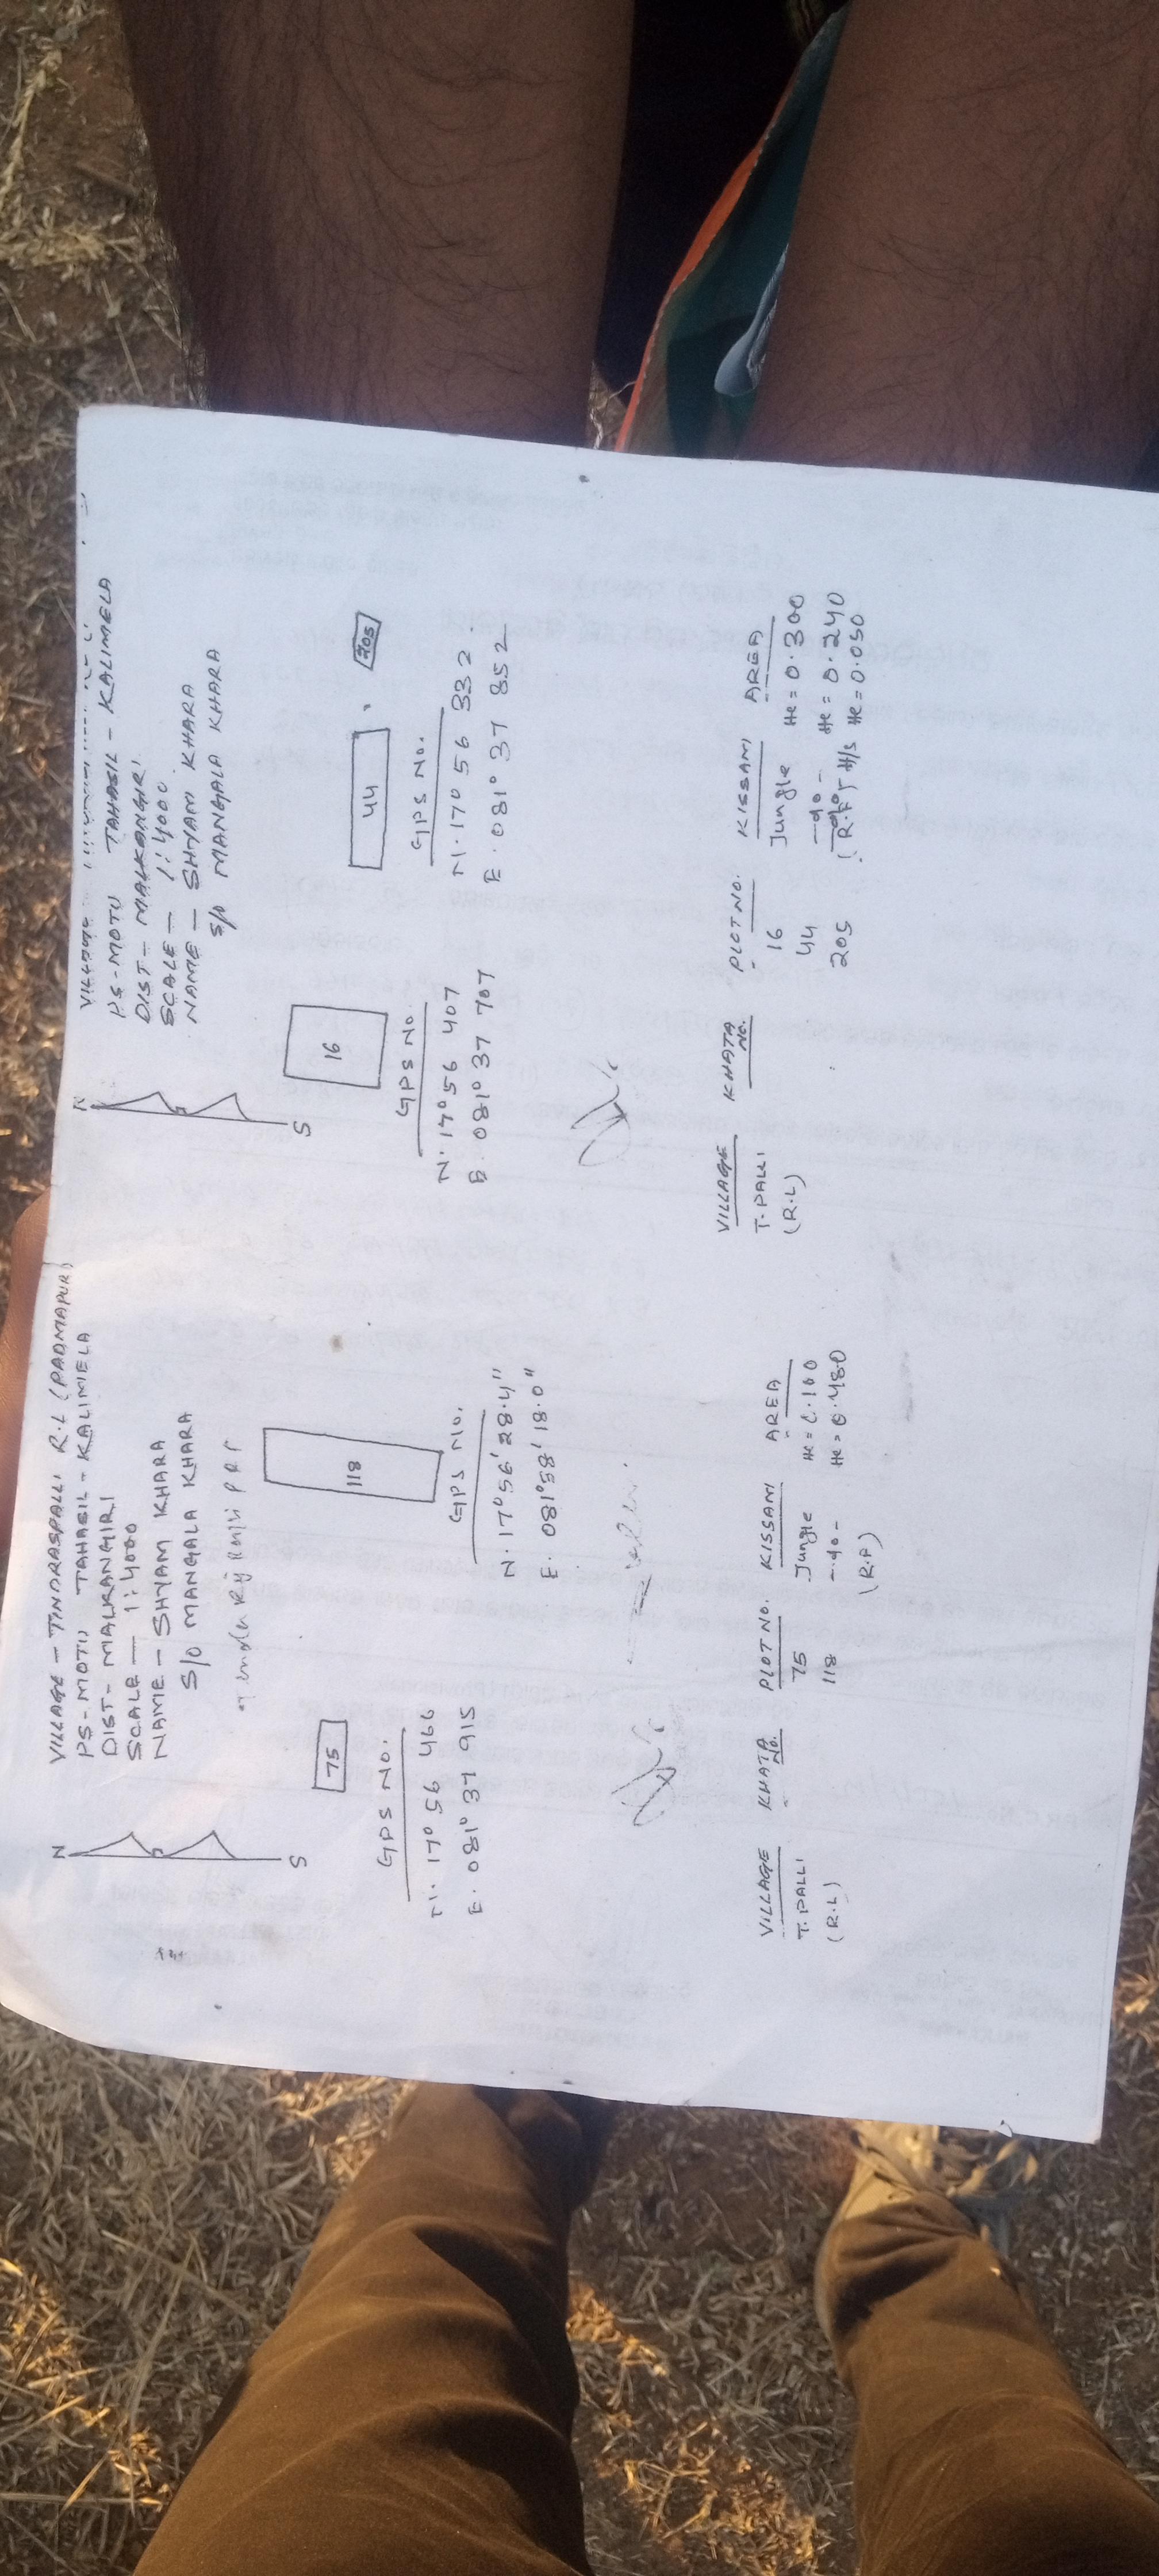 VILLAGE - TINDRASPALLI R.L (PADMAPUR)
PS-MOTU TAHASIL-KALIMELA
DIST-MALKANGIRI
SCALE - 1:4000
NAME - SHYAM KHARA
S/O MANGALA KHARA
N
S
75
118
GPS NO.
N. 17° 56 466
E. 081° 37 915
GPS NO.
N. 17° 56' 28.4"
E. 081° 38' 18.0"
VILLAGE KHATA NO. PLOT NO. KISSAM AREA
T. PALLI 75 Jungle He = 0.100
(R.L) 118 -do- He = 0.480
(R.F)
PS-MOTU TAHASIL-KALIMELA
DIST-MALKANGIRI
SCALE - 1:4000
NAME - SHYAM KHARA
S/O MANGALA KHARA
N
S
16
44
205
GPS NO.
N. 17° 56 407
E. 081° 37 707
GPS NO.
N. 17° 56 332
E. 081° 37 852
VILLAGE KHATA NO. PLOT NO. KISSAM AREA
T. PALLI 16 Jungle He = 0.300
(R.L) 44 -do- He = 0.240
205 -do- H/S He = 0.050
(R.F)